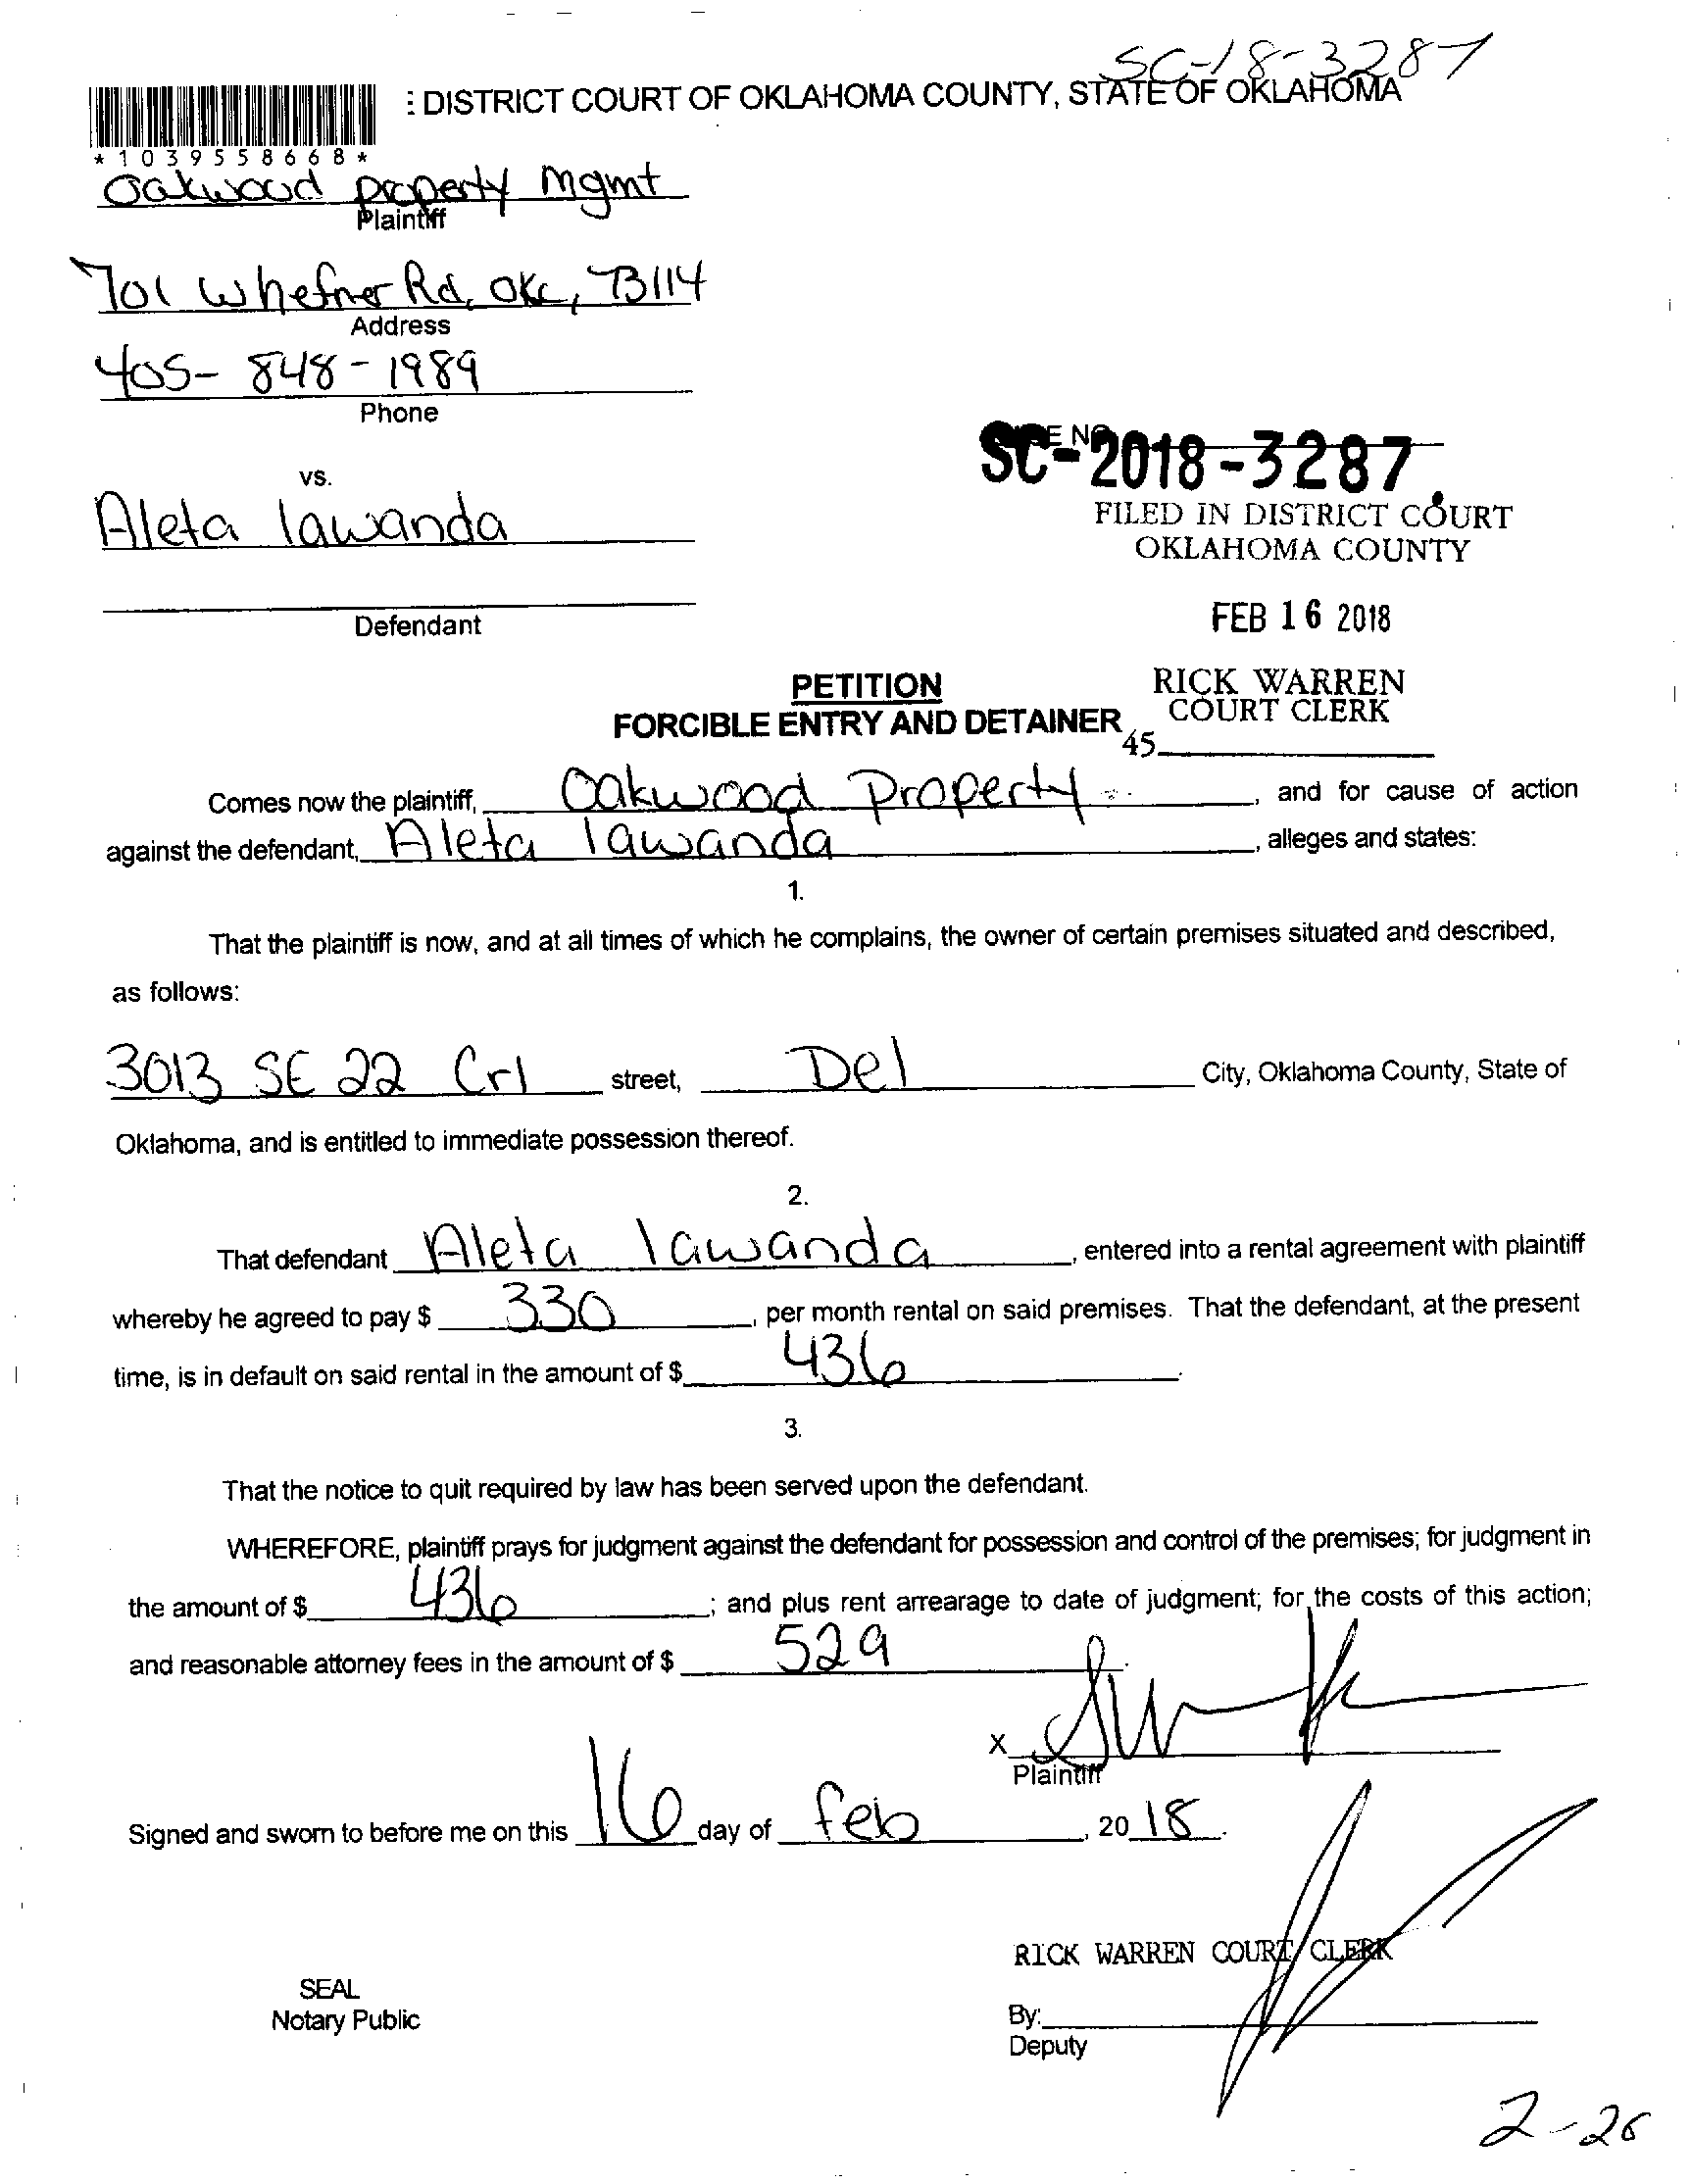 SC-18-3287
: DISTRICT COURT OF OKLAHOMA COUNTY, STATE OF OKLAHOMA
*1039558668*
Oakwood property Mgmt
Plaintiff
701 Whefner Rd, OKC, 73114
Address
405-848-1989
Phone
SC-2018-3287
vs.
Aleta lawanda
FILED IN DISTRICT COURT
OKLAHOMA COUNTY
Defendant
FEB 16 2018
PETITION
FORCIBLE ENTRY AND DETAINER
RICK WARREN
COURT CLERK
45
Comes now the plaintiff, Oakwood Property, and for cause of action
against the defendant, Aleta lawanda, alleges and states:
1.
That the plaintiff is now, and at all times of which he complains, the owner of certain premises situated and described,
as follows:
3013 SE 22 Crl street, Del City, Oklahoma County, State of
Oklahoma, and is entitled to immediate possession thereof.
2.
That defendant Aleta lawanda, entered into a rental agreement with plaintiff
whereby he agreed to pay $ 330, per month rental on said premises. That the defendant, at the present
time, is in default on said rental in the amount of $ 436.
3.
That the notice to quit required by law has been served upon the defendant.
WHEREFORE, plaintiff prays for judgment against the defendant for possession and control of the premises; for judgment in
the amount of $ 436; and plus rent arrearage to date of judgment; for the costs of this action;
and reasonable attorney fees in the amount of $ 529.
X
Plaintiff
Signed and sworn to before me on this 16 day of feb, 20 18.
RICK WARREN COURT CLERK
SEAL
Notary Public
By:
Deputy
2-26